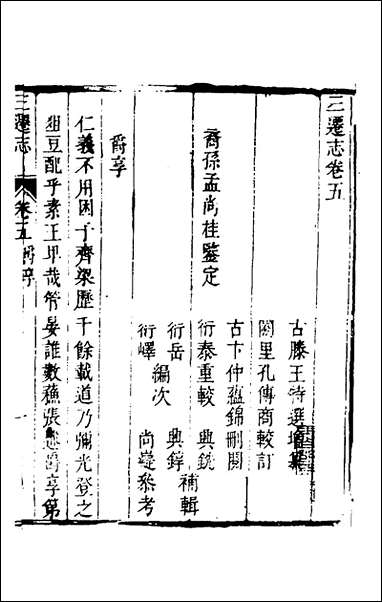 三遷志卷五
古滕王特選增纂
闕里孔傳商較訂
古卞仲蘊錦刪閱
裔孫孟尚桂鑒定
衍泰重較 興銑
衍岳 興錞
編次 補輯
衍嶧 尚㦤叅考
爵享
仁義不用困于齊梁歷千餘載道乃彌光登之
俎豆配乎素王卑哉管晏誰數蘇張述爵享第
三遷志 卷五 爵享